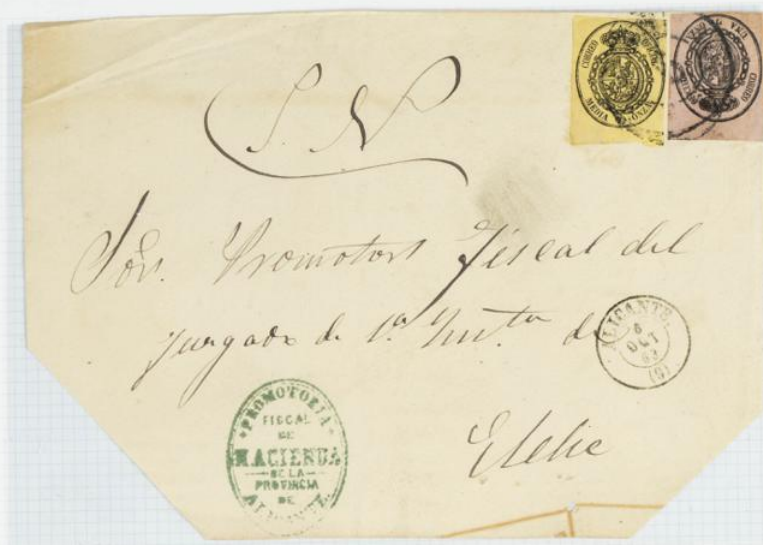 CORREO OFICIAL
MEDIA ONZA
CORREO OFICIAL
UNA ONZA
S. N.
Sór. Promotor Fiscal del
Juzgado de 1ª Insta. de
Elche
ALICANTE.
6
OCT
(9)
PROMOTORIA
FISCAL
DE
HACIENDA
DE LA
PROVINCIA
DE
ALICANTE